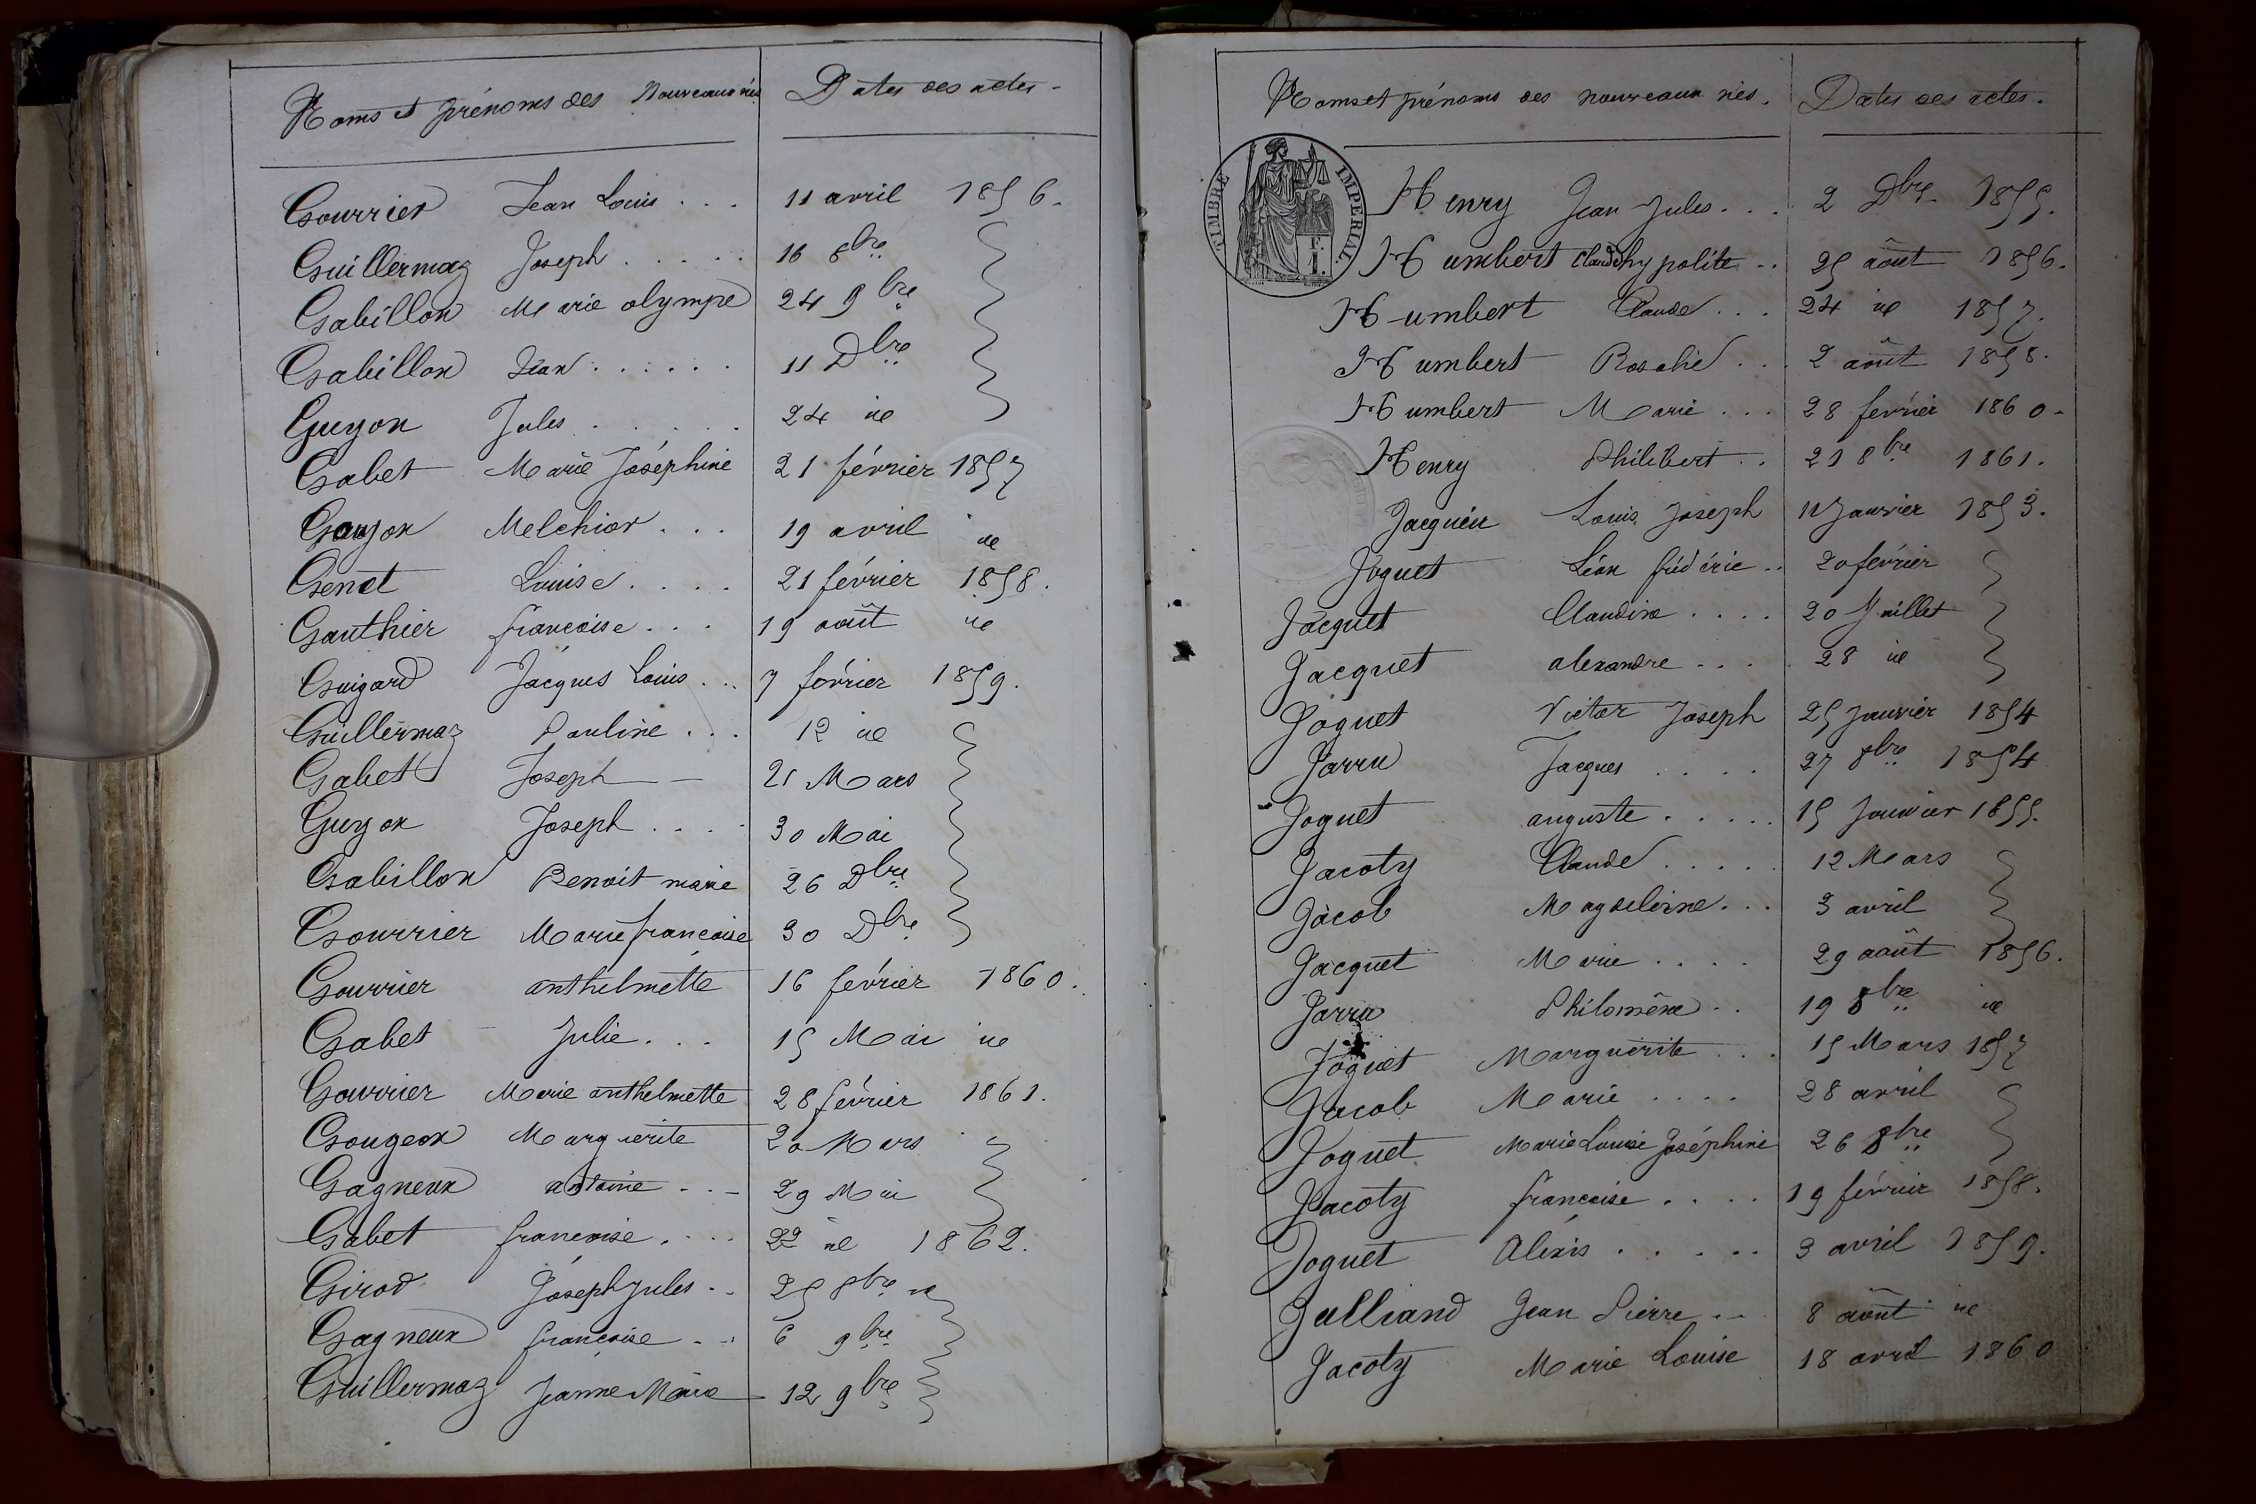 Noms et prénoms des Nouveaux nés Dates des actes -
Gourrier Jean Louis . . . 11 avril 1856.
Guillermaz Joseph . . . . . 16 8bre
Gabillon Marie olympe 24 9bre
Gabillon Jean . . . . . . 11 Dbre
Guyon Jules . . . . . 24 ue
Gabet Marie Joséphine 21 février 1857
Goujon Melchior . . . 19 avril ue
Genet Louise . . . . 21 février 1858.
Gauthier françoise . . . 19 août ue
Guigard Jacques Louis . . . 7 février 1859.
Guillermaz Pauline . . . 12 ue
Gabet Joseph — 21 Mars
Guyon Joseph . . . . 30 Mai
Gabillon Benoit marie 26 Dbre
Gourrier Marie françoise 30 Dbre
Gourrier anthelmette 16 février 1860.
Gabet Julie . . . 15 Mai ue
Gourrier Marie anthelmette 28 février 1861.
Gougeon Marguerite 20 Mars
Gagneux antoine . . - 29 Mai
Gabet françoise . . . . 22 ue 1862.
Girod Joseph Jules . . 25 8bre ue
Gagneux françoise - . . 6 9bre
Guillermaz Jeanne Marie 12 9bre
Noms et prénoms des nouveaux nés. Dates des actes.
TIMBRE IMPERIAL
1 F.
Henry Jean Jules . . . 2 Dbre 1855.
Humbert Claude hypolite . . 25 août 1856.
Humbert Claude . . . 24 ue 1857.
Humbert Rosalie . . . 2 août 1858.
Humbert Marie . . . 28 février 1860 -
Henry Philibert . . 21 8bre 1861.
Jacquin Louis Joseph 11 Janvier 1853.
Joguet Léon frédéric . . 20 février
Jacquet Claudine . . . . 20 Juillet
Jacquet alexandre . . . . 28 ue
Joguet Victor Joseph 25 Janvier 1854
Jarru Jacques . . . . 27 8bre 1854
Joguet auguste . . . . . 15 Janvier 1855.
Jacoty Claude . . . . . 12 Mars
Jacob Magdeleine . . . 3 avril
Jacquet Marie . . . . 29 août 1856.
Jarru Philomène . . 19 8bre ue
Joguet Marguerite . . . 15 Mars 1857
Jacob Marie . . . . 28 avril
Joguet Marie Louise Joséphine 26 8bre
Jacoty francoise . . . . 19 février 1858.
Joguet Aléxis . . . . . 3 avril 1859.
Julliand Jean Pierre . . 8 août ue
Jacoty Marie Louise 18 avril 1860